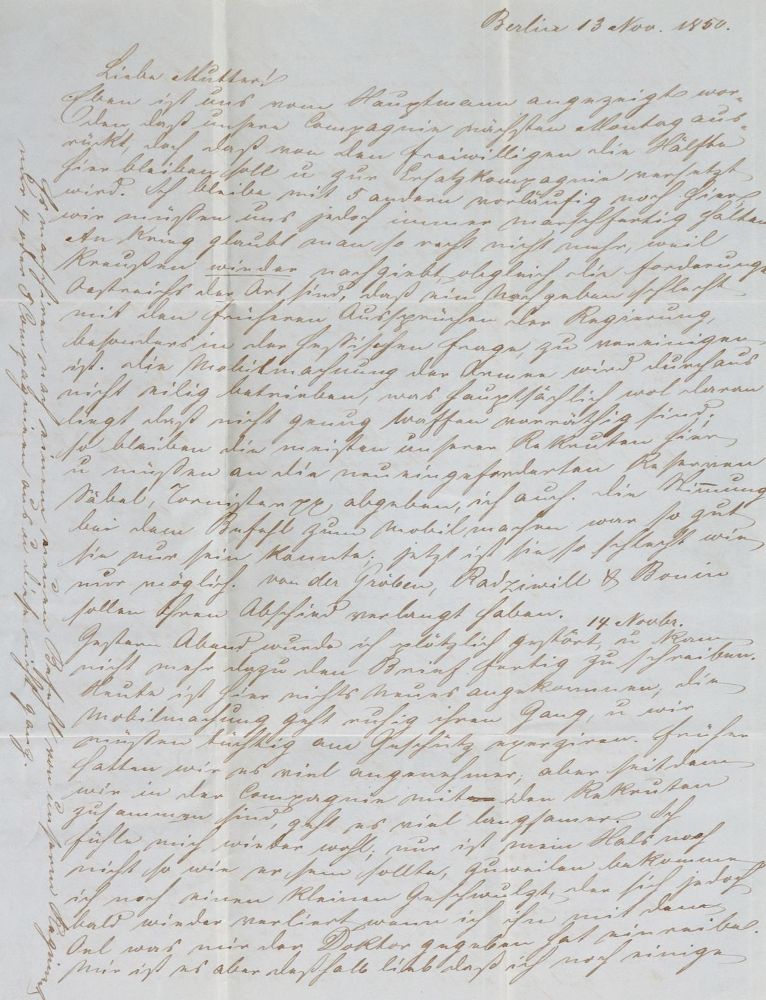 Berlin 13 Nov. 1850.
Liebe Mutter!
Eben ist uns vom Hauptmann angezeigt wor-
den daß unsere Compagnie nächsten Montag aus-
rückt, doch daß von den Freiwilligen die Hälfte
hier bleiben soll u zur Ersatzkompagnie versetzt
wird. Ich bleibe mit 5 andern vorläufig noch hier,
wir müßen uns jedoch immer marschfertig halten
An Krieg glaubt man so recht nicht mehr, weil
Preußen wieder nachgiebt, obgleich die Forderungen
Oestreichs der Art sind, daß ein Nachgeben schlecht
mit den früheren Aussprüchen der Regierung
besonders in der hessischen Frage, zu vereinigen
ist. Die Mobilmachung der Armee wird durchaus
nicht eilig betrieben, was hauptsächlich wol daran
liegt daß nicht genug Waffen vorräthig sind;
so bleiben die meisten unserer Rekruten hier
u müßen an die neu eingeforderten Reserven
Säbel, Tornister pp abgeben, ich auch. Die Stimmung
bei dem Befehl zum Mobilmachen war so gut
sie nur sein konnte; jetzt ist sie so schlecht wie
nur möglich. von der Gröben, Radziwill & Bonin
sollen ihren Abschied verlangt haben.
14 Novbr.
Gestern Abend wurde ich plötzlich gestört, u kam
nicht mehr dazu den Brief fertig zu schreiben.
Heute ist hier nichts Neues angekommen, die
Mobilmachung geht ruhig ihren Gang, u wir
müßen tüchtig am Geschütz exerziren. Früher
hatten wir es viel angenehmer, aber seitdem
wir in der Compagnie mit den Rekruten
zusammen sind, geht es viel langsamer. Ich
fühle mich wieder wohl, nur ist mein Hals noch
nicht so wie er sein sollte, zuweilen bekomme
ich noch einen kleinen Geschwulst, der sich jedoch
bald wieder verliert wenn ich ihn mit dem
Oel was mir der Doktor gegeben hat einreibe.
Mir ist es aber deßhalb lieb daß ich noch einige
So marschiren nach einem neuen Befehl von unserm Regiment
nur 4 oder 5 Compagnien aus u diese nicht ganz.